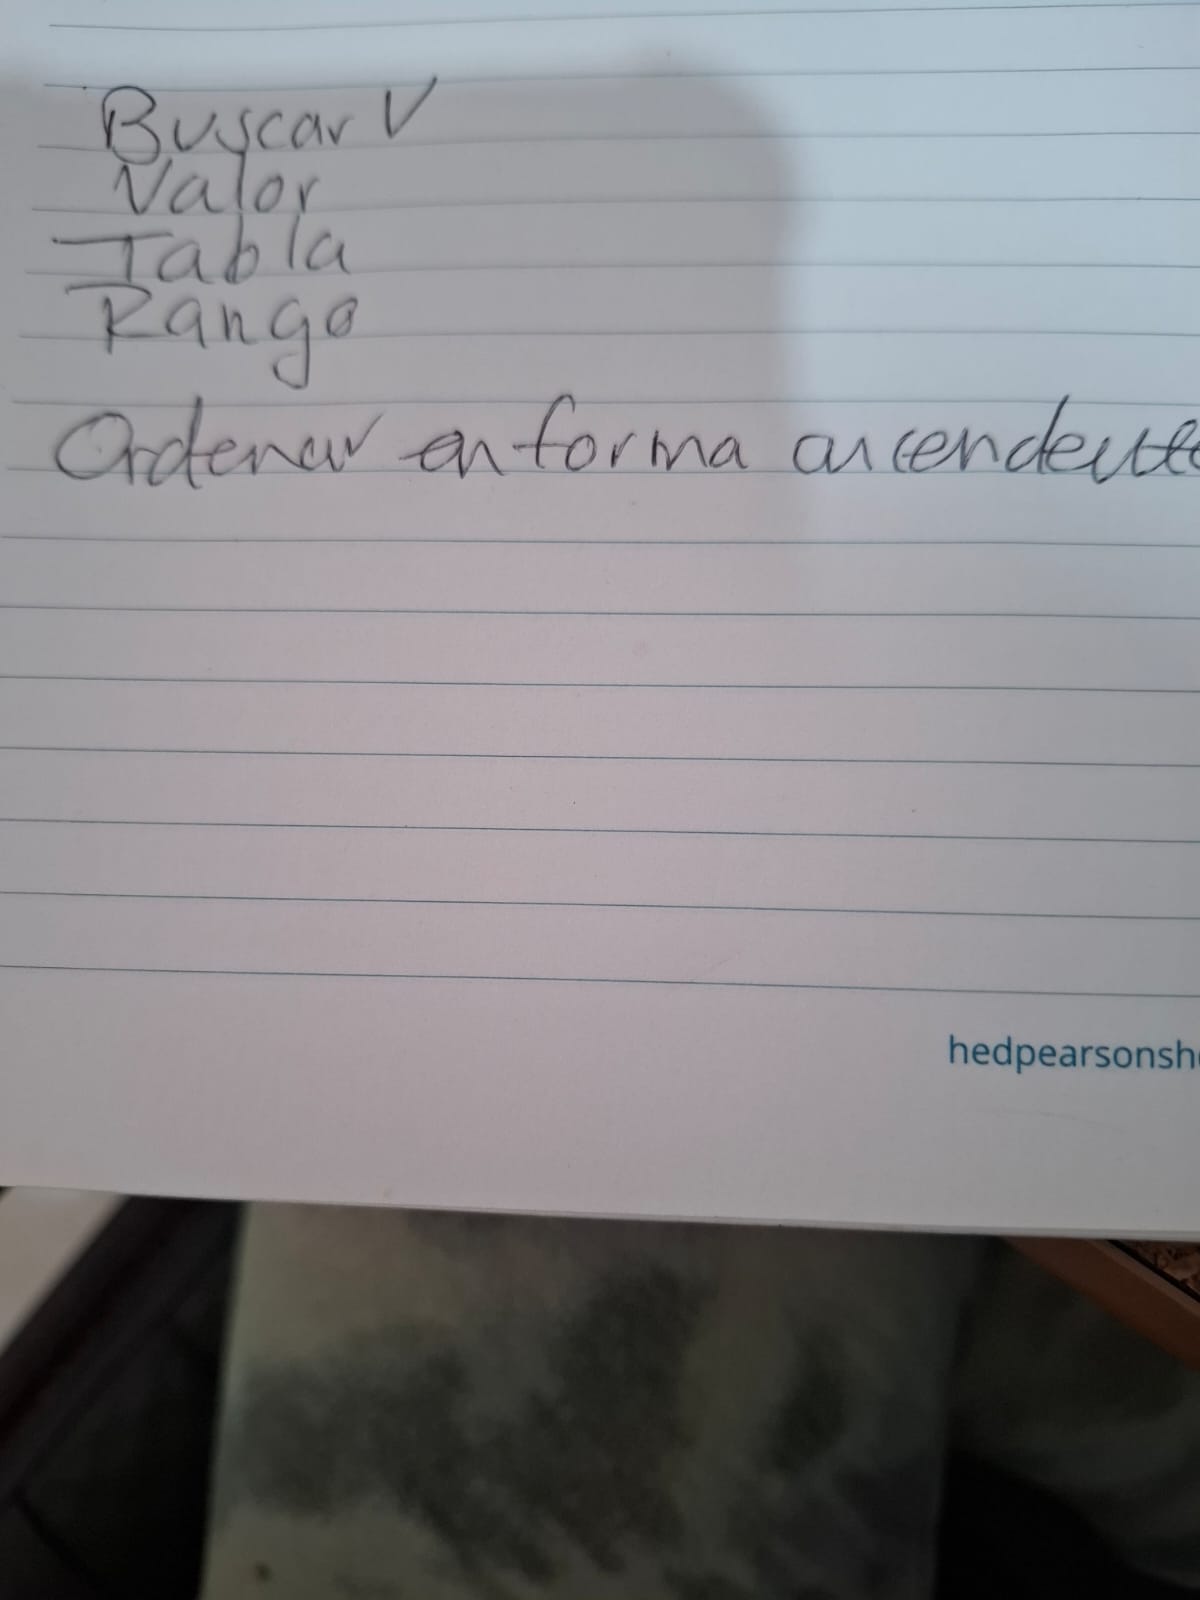 Buscar V
Valor
Tabla
Rango
Ordenar en forma ascendente
hedpearsonsh